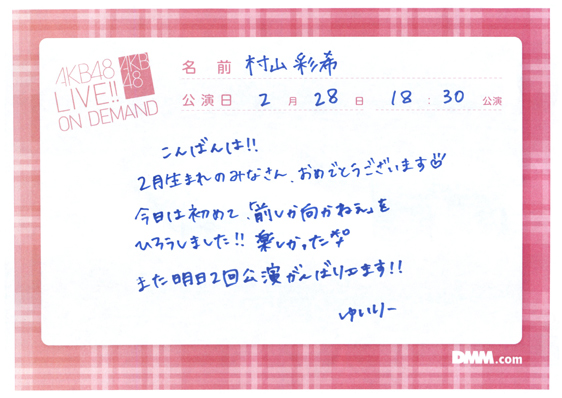 AKB48
LIVE!!
ON DEMAND
AKB
48
名 前 村山彩希
公演日 2月28日 18:30 公演
こんばんは!!
2月生まれのみなさん、おめでとうございます
今日は初めて、「前しか向かねえ」を
ひろうしました!! 楽しかった
また明日2回公演がんばります!!
ゆいりー
DMM.com